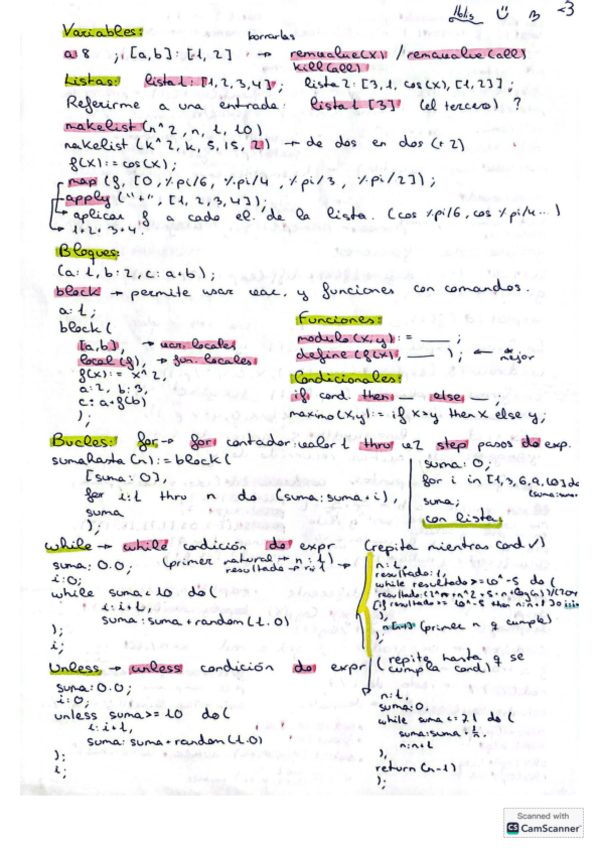 <3
Variables: borrarlas
a:8 ; [a,b]:[1,2] → remvalue(x) / remvalue(all)
kill(all)
Listas: lista1:[1,2,3,4]; lista2:[3,1,cos(x),[1,2]];
Referirme a una entrada: lista1[3] (el tercero) ?
makelist(n^2,n,1,10)
makelist(k^2,k,5,15,2) → de dos en dos (+2)
f(x):=cos(x);
map(f,[0,%pi/6,%pi/4,%pi/3,%pi/2]);
apply("+",[1,2,3,4]);
aplicar f a cada el. de la lista. (cos %pi/6, cos %pi/4...)
1+2+3+4.
Bloques:
(a:1,b:2,c:a+b);
block → permite usar var. y funciones con comandos.
a:1;
block(
[a,b], → var. locales
local(f), → fun. locales
f(x):=x^2,
a:2, b:3,
c:a+f(b)
);
Funciones:
modulo(x,y):= ___ ;
define(f(x), ___ ); ← mejor
Condicionales:
if cond. then __ else __;
maximo(x,y):= if x>y then x else y;
Bucles: for → for contador:valor1 thru v2 step pasos do exp.
sumahasta(n):=block(
[suma:0],
for i:1 thru n do (suma:suma+i),
suma
);
suma:0;
for i in [1,3,6,9,10] do
suma;
con listas
while → while condición do expr (repita mientras cond ✓)
suma:0.0;
i:0;
while suma<10 do(
i:i+1,
suma:suma+random(1.0)
);
i;
(primer natural → n:1)
n:1,
resultado:1,
while resultado>=10^-5 do (
);
(primer n q cumple)
);
Unless → unless condición do expr (repita hasta q se
cumpla cond)
suma:0.0;
i:0;
unless suma>=10 do(
i:i+1,
suma:suma+random(1.0)
);
i;
n:1,
suma:0,
while suma<=21 do (
suma:suma+1/n,
n:n+1
);
return(n-1)
);
Scanned with
CS CamScanner